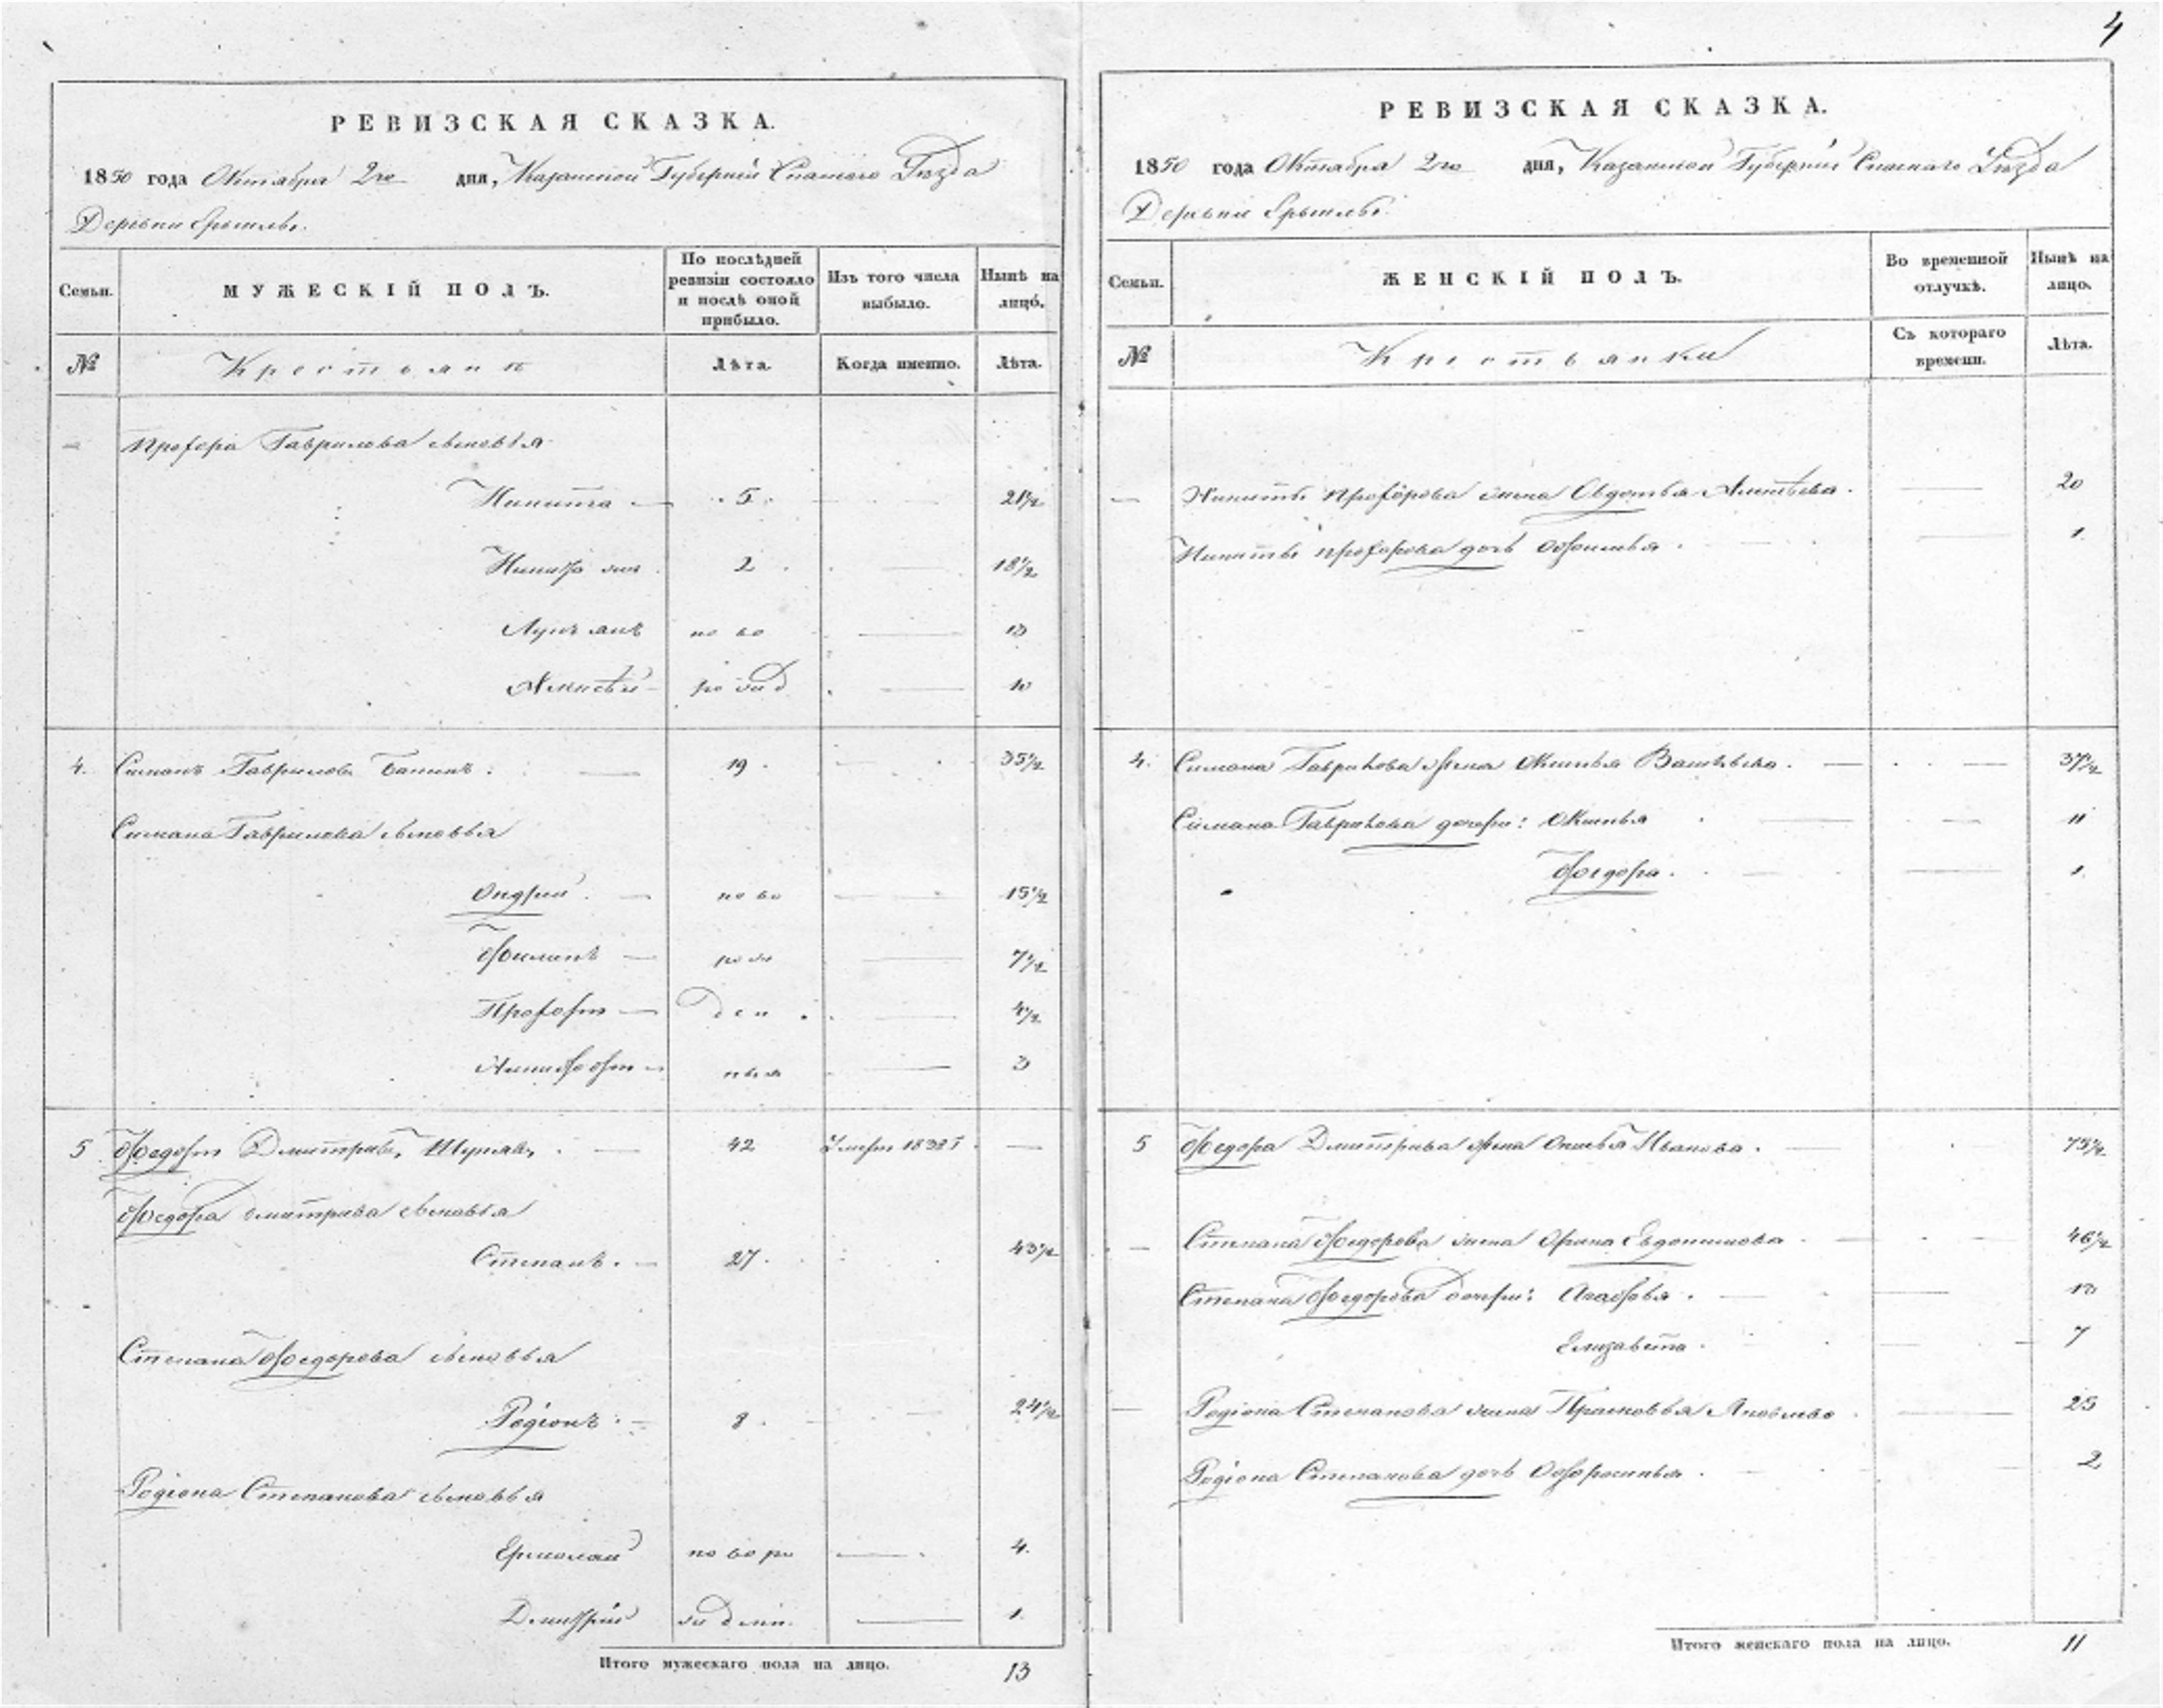 4
РЕВИЗСКАЯ СКАЗКА.
1850 года Октября 2го дня, Казанской Губерніи Спаскаго Уѣзда
Деревни
Семьи. МУЖЕСКІЙ ПОЛЪ. По послѣдней ревизіи состояло и послѣ оной прибыло. Изъ того числа выбыло. Нынѣ на лицо.
№ Крестьянъ Лѣта. Когда именно. Лѣта.
Профора Гаврилова сыновья
Никита 5 21½
2 18½
Лукъянъ ново 13
Алексѣй рожд 10
4. Симанъ Гавриловъ 19 35½
Симана Гаврилова сыновья
Ондрей ново 15½
Филипъ рож 7½
Профоръ ден 4½
Никифоръ ныя 3
5 Федоръ Дмитривъ 42 Умеръ 1838 г
Федора Дмитрива сыновья
Степанъ 27 43½
Степана Федорова сыновья
Родіонъ 8 24½
Родіона Степанова сыновья
Ермолай новоро 4
Дмитрій жденн. 1
Итого мужескаго пола на лицо. 13
РЕВИЗСКАЯ СКАЗКА.
1850 года Октября 2го дня, Казанской Губерніи Спаскаго Уѣзда
Деревни
Семьи. ЖЕНСКІЙ ПОЛЪ. Во временной отлучкѣ. Нынѣ на лицо.
№ Крестьянки Съ котораго времени. Лѣта.
Никиты Профорова жена Овдотья Алексѣева 20
Никиты Профорова дочь Офимья 1
4. Симана Гаврилова жена Оксинья Васильева 37½
Симана Гаврилова дочери: Оксинья 11
Федора 1
5 Федора Дмитрива жена Онисья Иванова 75½
Степана Федорова жена Орина Евдокимова 46½
Степана Федорова дочери: Агафья 10
Елизавета 7
Родіона Степанова жена Прасковья Яковлева 25
Родіона Степанова дочь Офросинья 2
Итого женскаго пола на лицо. 11